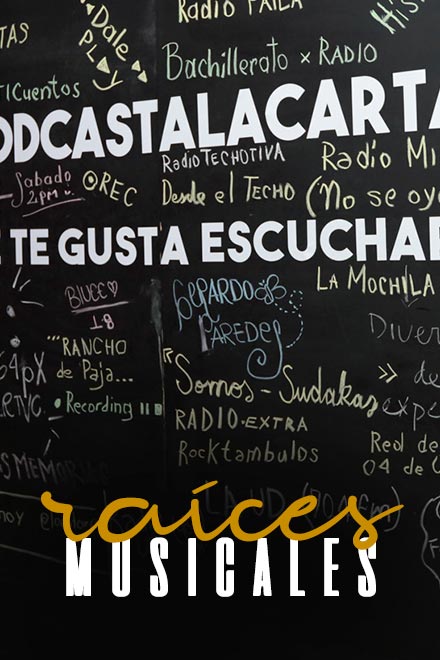 Radio FAILA
Dale
PLAY
Bachillerato x RADIO
Cuentos
ODCASTALACARTA
RADIO TECHOTIVA
Radio Mi
Sabado
2pm
REC
Desde el TECHO
(No se oye
TE GUSTA ESCUCHAR
BIUCE
BT
GERARDO
PAREDES
LA MOCHILA
Diver
RANCHO
de Paja...
64pX
Recording
Somos - Sudakas
de
expe
RADIO-EXTRA
Rocktambulos
Red de
04 de
raíces
MUSICALES